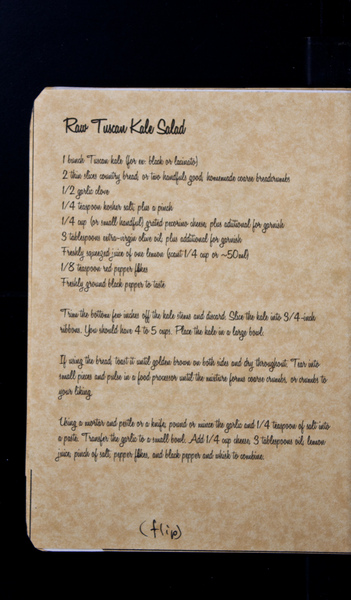 Raw Tuscan Kale Salad
1 bunch Tuscan kale (for ex: black or lacinato)
2 thin slices country bread, or two handfuls good, homemade coarse breadcrumbs
1/2 garlic clove
1/4 teaspoon kosher salt, plus a pinch
1/4 cup (or small handful) grated pecorino cheese, plus additional for garnish
3 tablespoons extra-virgin olive oil, plus additional for garnish
Freshly squeezed juice of one lemon (scant 1/4 cup or ~50ml)
1/8 teaspoon red pepper flakes
Freshly ground black pepper to taste
Trim the bottom few inches off the kale stems and discard. Slice the kale into 3/4-inch
ribbons. You should have 4 to 5 cups. Place the kale in a large bowl.
If using the bread, toast it until golden brown on both sides and dry throughout. Tear into
small pieces and pulse in a food processor until the mixture forms coarse crumbs, or crumbs to
your liking.
Using a mortar and pestle or a knife, pound or mince the garlic and 1/4 teaspoon of salt into
a paste. Transfer the garlic to a small bowl. Add 1/4 cup cheese, 3 tablespoons oil, lemon
juice, pinch of salt, pepper flakes, and black pepper and whisk to combine.
(flip)